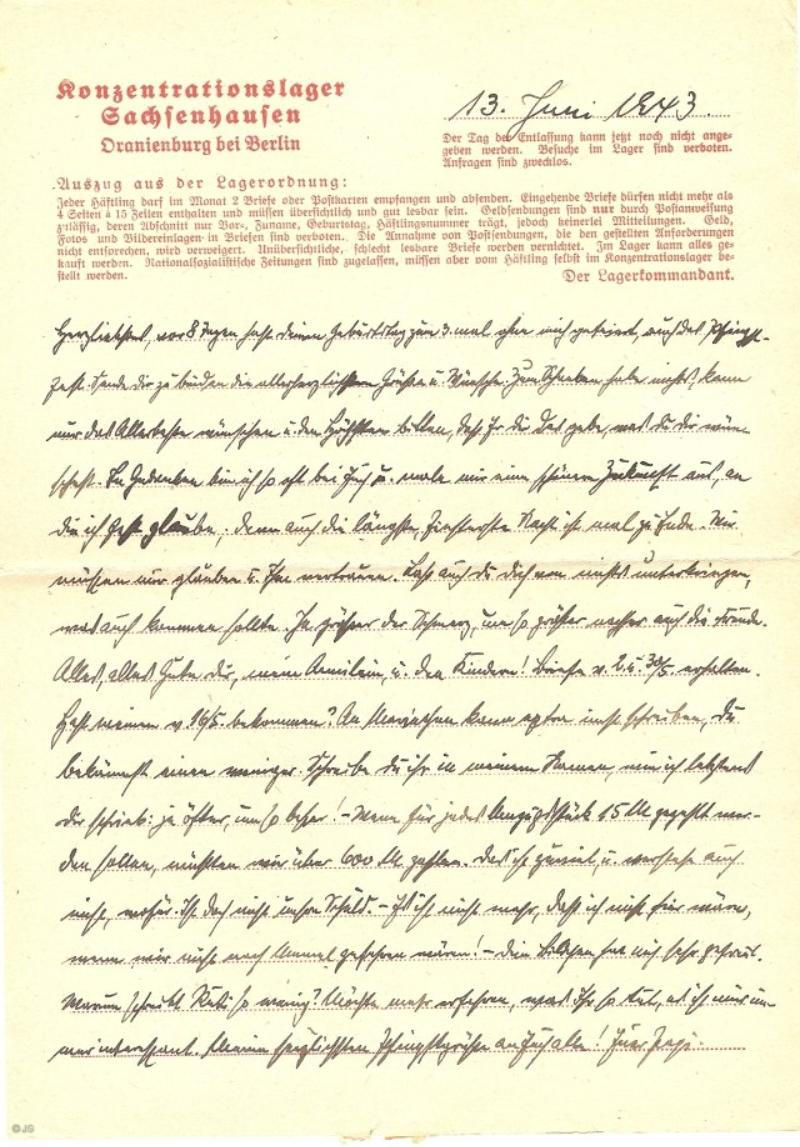 Konzentrationslager
Sachsenhausen
Oranienburg bei Berlin
13. Juni 1943.
Der Tag der Entlassung kann jetzt noch nicht ange-
geben werden. Besuche im Lager sind verboten.
Anfragen sind zwecklos.
Auszug aus der Lagerordnung:
Jeder Häftling darf im Monat 2 Briefe oder Postkarten empfangen und absenden. Eingehende Briefe dürfen nicht mehr als
4 Seiten à 15 Zeilen enthalten und müssen übersichtlich und gut lesbar sein. Geldsendungen sind nur durch Postanweisung
zulässig, deren Abschnitt nur Vor-, Zuname, Geburtstag, Häftlingsnummer trägt, jedoch keinerlei Mitteilungen. Geld,
Fotos und Bildereinlagen in Briefen sind verboten. Die Annahme von Postsendungen, die den gestellten Anforderungen
nicht entsprechen, wird verweigert. Unübersichtliche, schlecht lesbare Briefe werden vernichtet. Im Lager kann alles ge-
kauft werden. Nationalsozialistische Zeitungen sind zugelassen, müssen aber vom Häftling selbst im Konzentrationslager be-
stellt werden.
Der Lagerkommandant.
vor 8 Tagen hast deinen Geburtstag zum 3. mal ohne mich gefeiert, auch das Pfingst-
fest. Sende dir zu beiden die allerherzlichsten Grüße u. Wünsche. Zum Schenken habe nichts, kann
nur das Allerbeste wünschen u. den Höchsten bitten, daß Er dir das gebe, was du dir wün-
schest. In Gedanken bin ich so oft bei Euch u. male mir eine schönere Zukunft aus, an
die ich fest glaube, denn auch die längste, finsterste Nacht ist mal zu Ende. Wir
müssen nur glauben u. Ihm vertrauen. Laß auch du dich von nichts unterkriegen,
was auch kommen sollte. Je größer der Schmerz, um so größer nachher auch die Freude.
Alles, alles Gute dir, mein u. den Kindern! Briefe v. 2. u. 30/5. erhalten.
Hast meinen v. 16/5. bekommen? An kann extra nicht schreiben, du
bekämest einen weniger. Schreibe du ihr in meinem Namen, wie ich letztens
dir schrieb: je öfter, um so besser! – Wenn für jedes 15 M gezahlt wer-
den sollen, müßten wir über 600 M. zahlen. Das ist zuviel, u. verstehe auch
nicht, wofür. Ist doch nicht unsre Schuld. – Ist nicht mehr, daß ich nicht hier wäre,
wenn wir nicht nach gefahren wären! – Dein hat mich sehr gefreut.
Warum schreibt so wenig? Möchte mehr erfahren, was ihr so tut,
mer interessant. Meine herzlichsten Pfingstgrüße an Euch alle! Euer
©JS